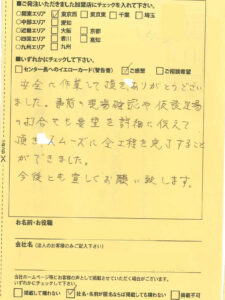 ■ご発注いただきました加盟店にチェックを入れて下さい。
○関東エリア ☑東京西 □東京東 □千葉 □埼玉
○中部エリア □愛知
○近畿エリア □大阪 □京都
○四国エリア □香川
○九州エリア □九州
■いずれかにチェックして下さい。
□センター長へのイエローカード(警告書) ☑ご感想 □ご相談希望
安全に作業して頂きありがとうござい
ました。事前の現場確認や仮設足場
の打合せも要望を詳細に伝えて
頂きスムーズに全工程を完了すること
ができました。
今後とも宜しくお願い致します。
お名前・お役職
会社名 (法人のお客様のみご記入下さい)
当社ホームページ等にお客様の声として掲載させていただく場合がございます。
いずれかにチェックして下さい。
□掲載して構わない ☑社名・名前が匿名ならば掲載しても構わない □掲載不可